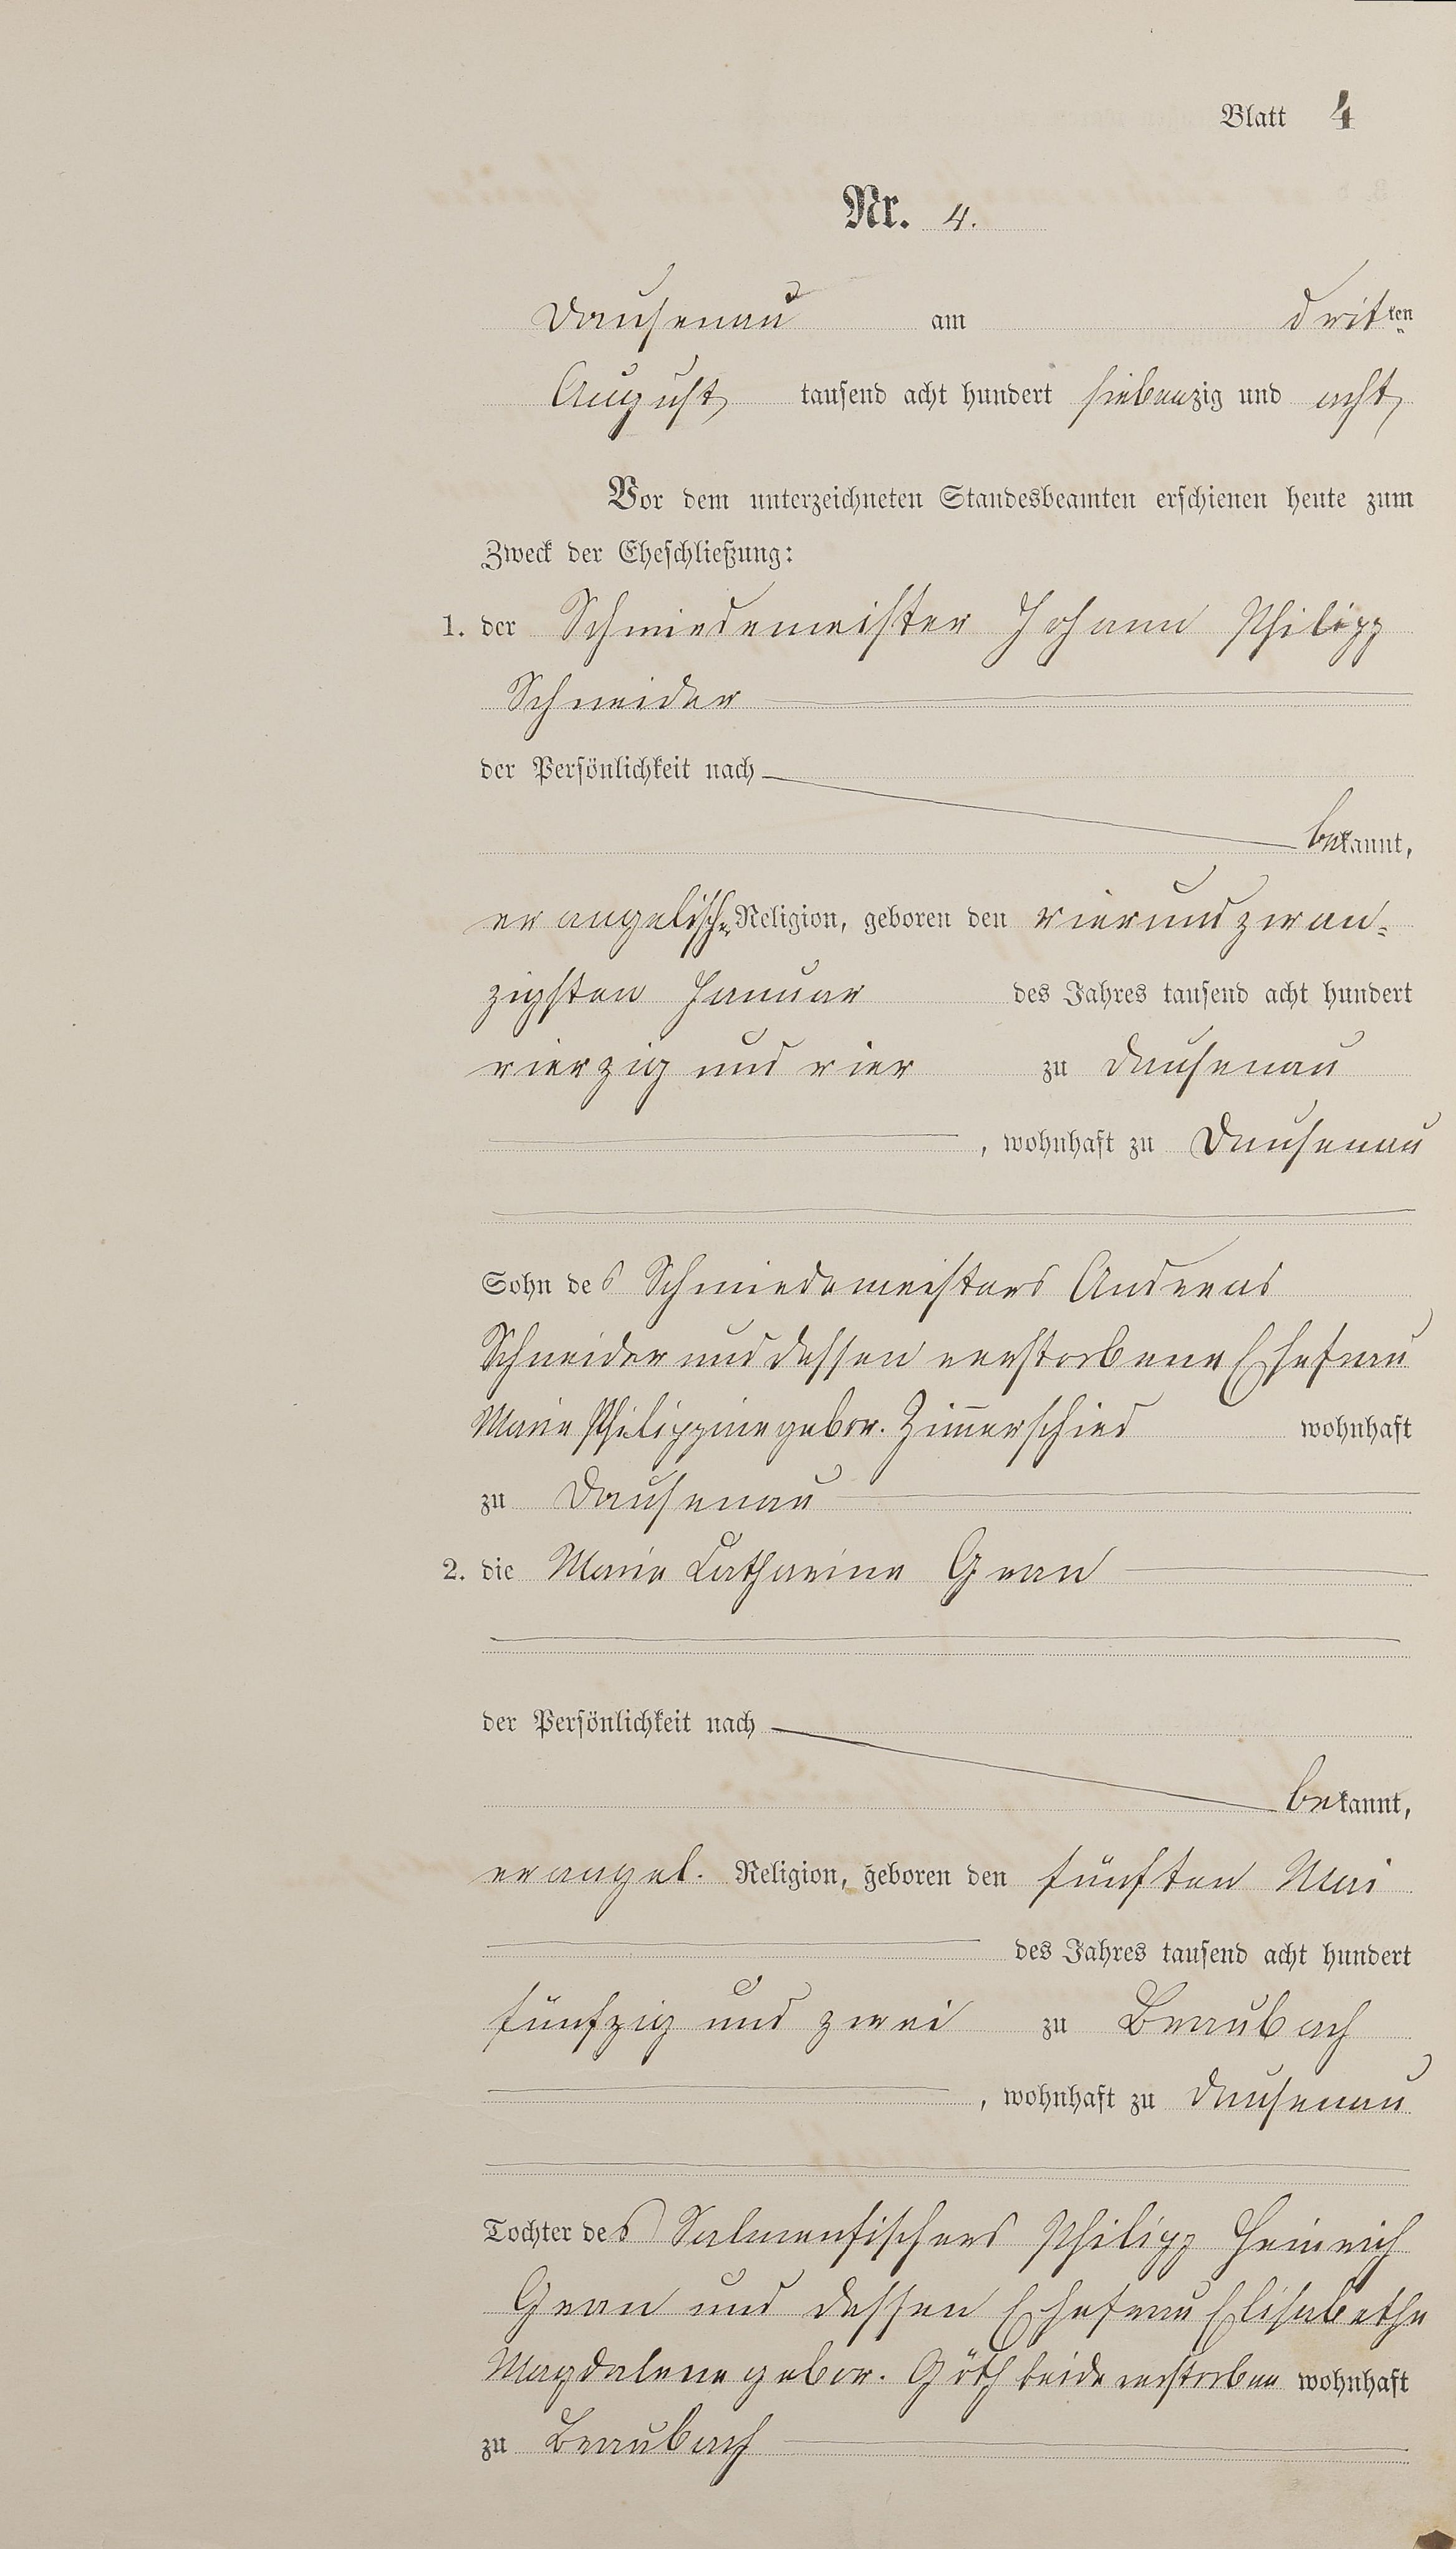 Blatt 4
Nr. 4.
Dausenau am dritten
August tausend acht hundert siebenzig und acht
Vor dem unterzeichneten Standesbeamten erschienen heute zum
Zweck der Eheschließung:
1. der Schmiedemeister Johann Philipp
Schneider
der Persönlichkeit nach
bekannt,
evangelischer Religion, geboren den vierundzwan-
zigsten Januar des Jahres tausend acht hundert
vierzig und vier zu Dausenau
, wohnhaft zu Dausenau
Sohn des Schmiedemeisters Andreas
Schneider und dessen verstorbene Ehefrau
Marie Philippine gebor. Zim̄erschied wohnhaft
zu Dausenau
2. die Marie Catharine
der Persönlichkeit nach
bekannt,
evangel. Religion, geboren den fünften Mai
des Jahres tausend acht hundert
fünfzig und zwei zu Braubach
, wohnhaft zu Dausenau
Tochter des Salmenfischers Philipp Heinrich
und dessen Ehefrau Elisabethe
Magdalene gebor. Göth beide verstorben wohnhaft
zu Braubach